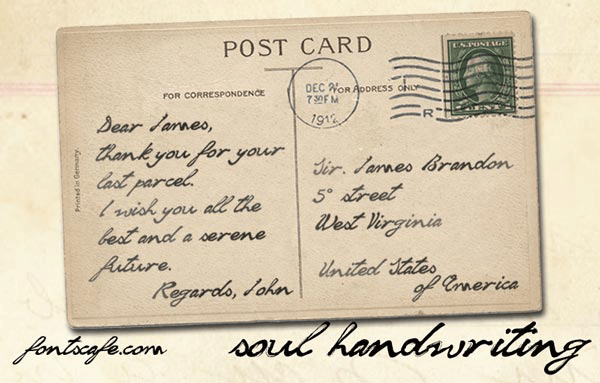 POST CARD
U.S. POSTAGE
FOR CORRESPONDENCE
FOR ADDRESS ONLY
DEC 21
7 30 PM
1912
CENTS
Printed in Germany.
Dear James,
thank you for your
last parcel.
I wish you all the
best and a serene
future.
Regards, John
Sir. James Brandon
5° street
West Virginia
United States
of America
fontscafe.com
soul handwriting